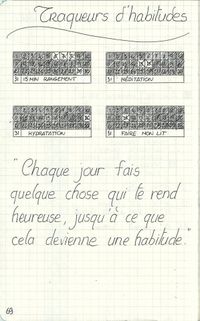 Traqueurs d'habitudes
31 15 MIN RANGEMENT
31 MÉDITATION
31 HYDRATATION
31 FAIRE MON LIT
"Chaque jour fais
quelque chose qui te rend
heureuse, jusqu'à ce que
cela devienne une habitude."
69